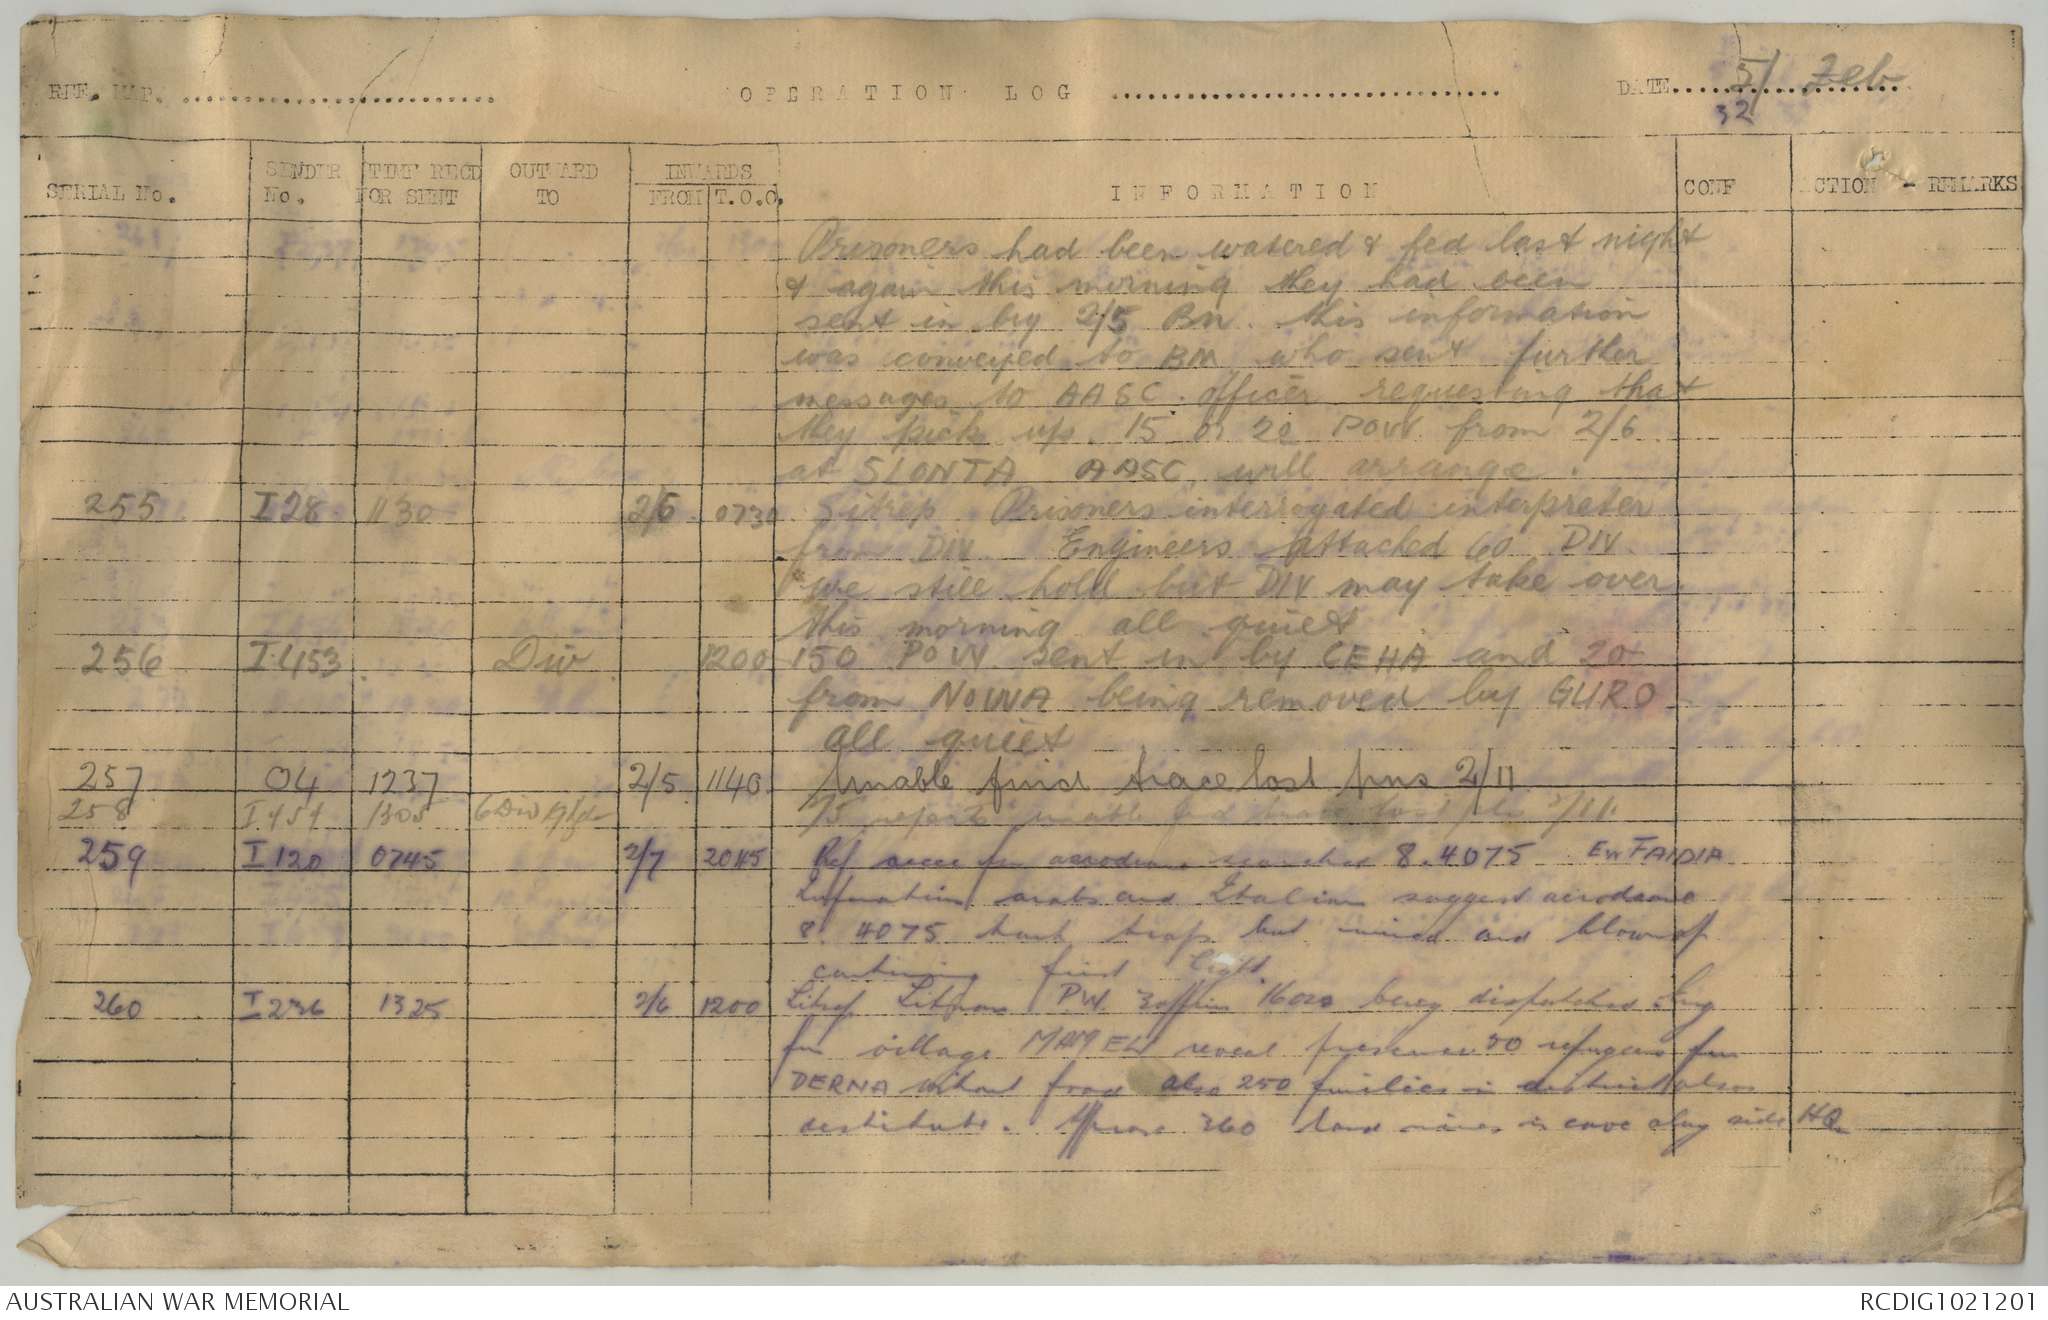 REF. MAP. .......................... OPERATION LOG .............................. DATE 5/ Feb
32
SERIAL No. SENDER No. TIME RECD OR SENT OUTWARD TO INWARDS FROM T.O.O. INFORMATION CONF ACTION - REMARKS
Prisoners had been watered & fed last night
& again this morning they had been
sent in by 2/5 Bn. this information
was conveyed to BM who sent further
messages to AASC. officer requesting that
they pick up 15 or 20 POW from 2/6
at SLONTA AASC will arrange.
255 I 28 1130 2/6 0730 Sitrep Prisoners interrogated interpreter
from DIV Engineers attached 60 DIV
we still hold but DIV may take over
this morning all quiet
256 I 453 Div 1200 150 POW sent in by CEHA and 20
from NOWA being removed by GURO
all quiet
257 O4 1237 2/5 1140 Unable find trace lost 2/11
258 I 454 1305 6 Div 2/5 report unable find trace lost 2/11
259 I 120 0745 2/7 2045 Ref aerodrome searched 8.4075 FAIDIA
Information arabs and Italians suggest aerodrome
8.4075 but mined and blown up
continuing first light.
260 I 236 1325 2/6 1200 Sitrep PW 3 officers 16 being dispatched
village reveal presence 50 refugees from
DERNA without food also 250 families in district also
destitute. Approx 360 land mines in cave along side HQ
AUSTRALIAN WAR MEMORIAL RCDIG1021201